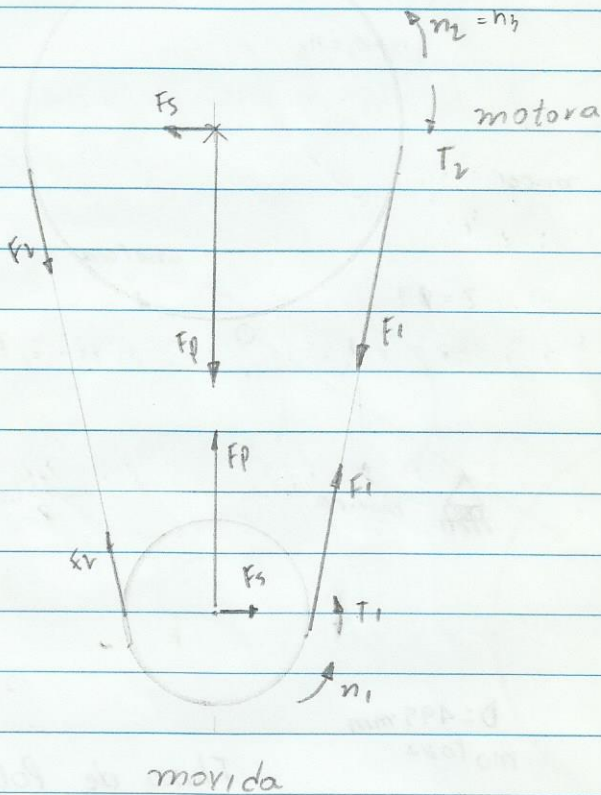 n2 = n3
Fs
motora
T2
F2
F1
Fp
Fp
F1
F2
Fs
T1
n1
movida